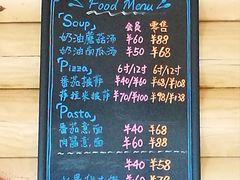 Food Menu
「Soup」 会员 零售
奶油蘑菇汤 ¥60 ¥88
奶油南瓜汤 ¥50 ¥68
「Pizza」 6寸/12寸 6寸/12寸
番茄披萨 ¥40/¥60 ¥68/¥108
菲拉米披萨 ¥70/¥100 ¥98/¥138
「Pasta」
番茄意面 ¥40 ¥68
肉酱意面 ¥60 ¥98
¥40 ¥58